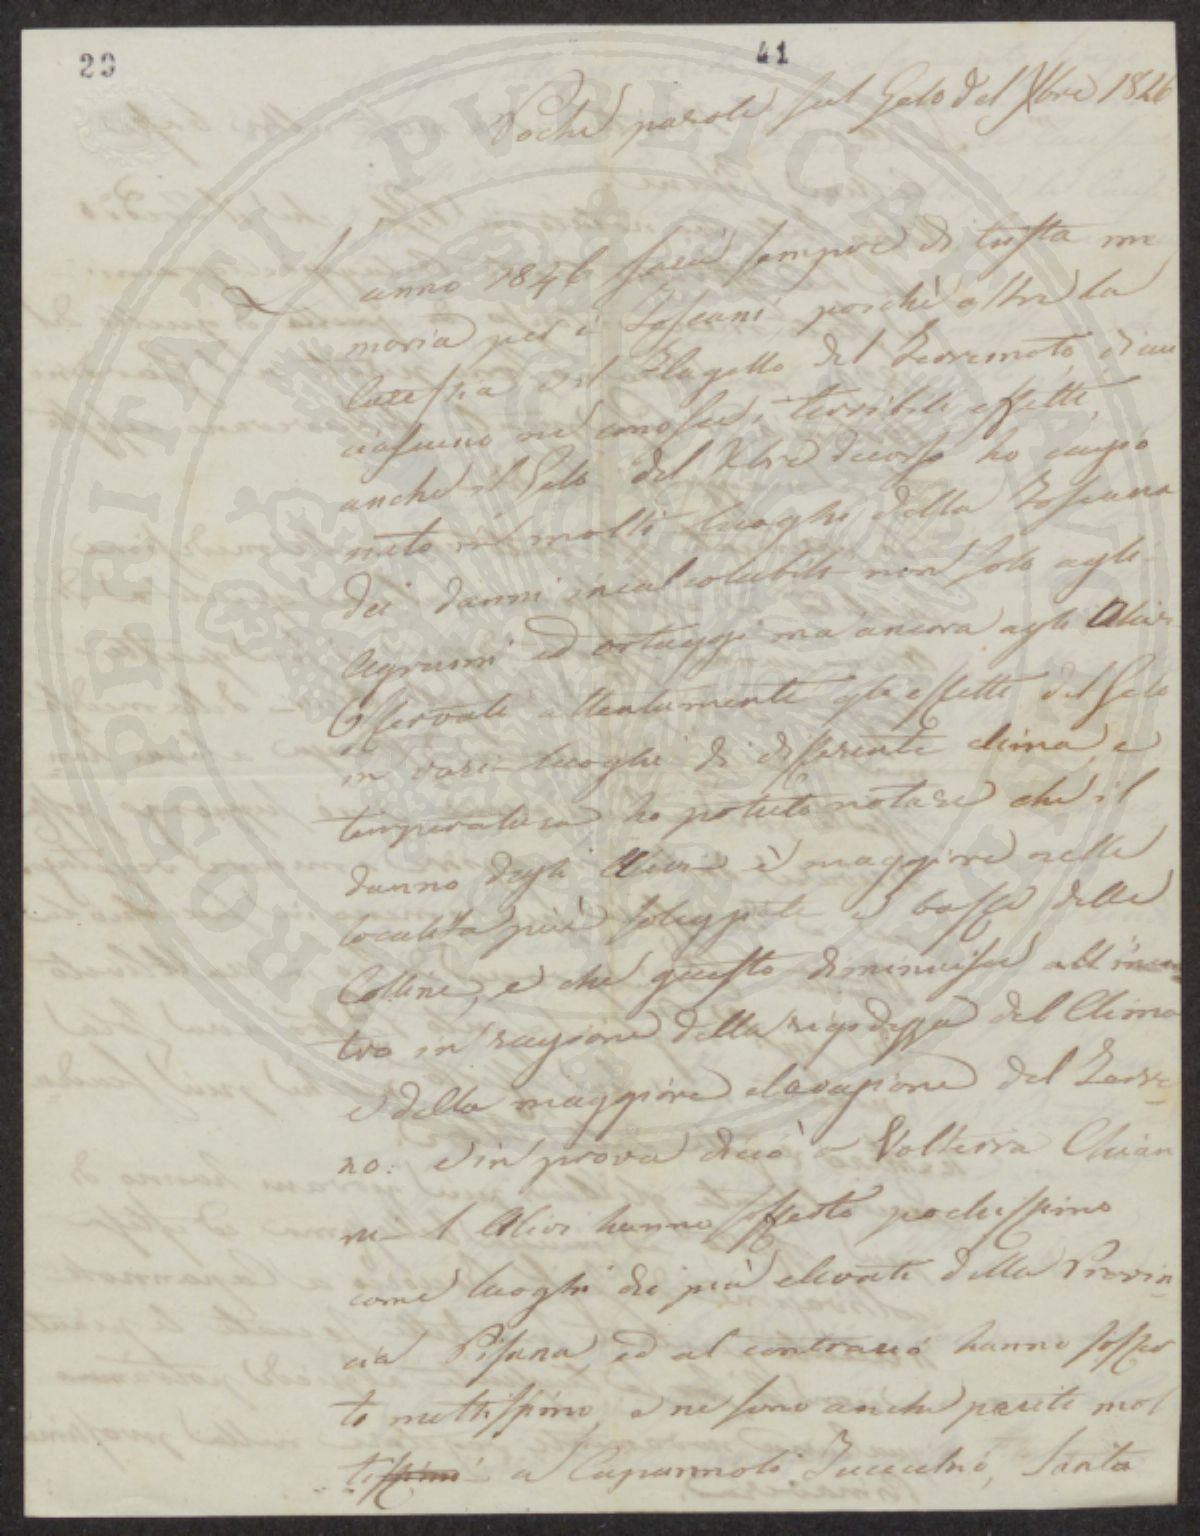 29
41
Poche parole sul Gelo del Xbre 1846
L'anno 1846 sarà sempre di trista me
moria per i Toscani poichè oltre la
del Flagello del Terremoto, di cui
ciascuno ne conosce i terribili effetti,
anche il Gelo del Xbre decorso ha cagio
nato in molti luoghi della Toscana
dei danni incalcolabili non solo agli
Agrumi ed ortaggi ma ancora agli Olivi.
Osservati attentamente gli effetti del Gelo
in vari luoghi di differente clima, e
temperatura ho potuto notare che il
danno degli Olivi è maggiore nelle
località più soleggiate e basse delle
Colline, e che questo diminuisce all'incon
tro in ragione della rigidezza del Clima
e della maggiore elevazione del Terre
no: e in prova di ciò a Volterra Chian
ni l Olivi hanno sofferto pochissimo
come luoghi dei più elevati della Provin
cia Pisana, ed al contrario hanno soffer
to moltissimo, e ne sono anche periti mol
tissimi a Capannoli, Fucecchio, Santa
PROSPERITATI PVBLICAE AVGENDAE